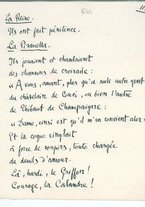 La Reine.
Ils ont fait pénitence.
La Brunette.
Ils jouaient et chantaient
des chansons de croisade :
"A vous, amant, plus qu'à nulle autre gent"
du châtelain de Couci, ou bien l'autre
de Thibaut de Champaigne :
"Dame, ainsi est qu'il m'en convient aler"
Et la coque cinglait
à force de roupiers, toute chargée
de deuils d'amour.
Là, hardi, le Griffon !
Courage, la Calandre !